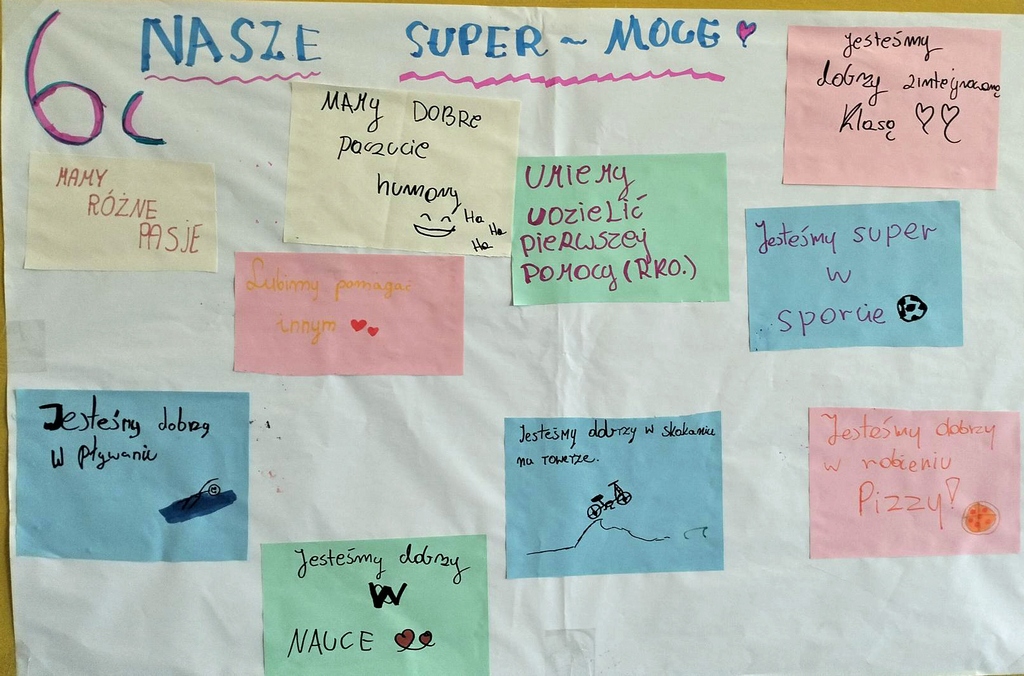 6c
NASZE SUPER-MOCE
Jesteśmy
dobrzy zintegrowaną
klasą
MAMY DOBRE
poczucie
humoru
Ha
Ha
Ha
MAMY
RÓŻNE
PASJE
UMIEMY
UDZIELIĆ
PIERWSZEJ
POMOCY (RKO.)
Jesteśmy super
w
sporcie
Lubimy pomagać
innym
Jesteśmy dobrzy
w pływaniu
Jesteśmy dobrzy w skakaniu
na rowerze.
Jesteśmy dobrzy
w robieniu
Pizzy!
Jesteśmy dobrzy
W
NAUCE